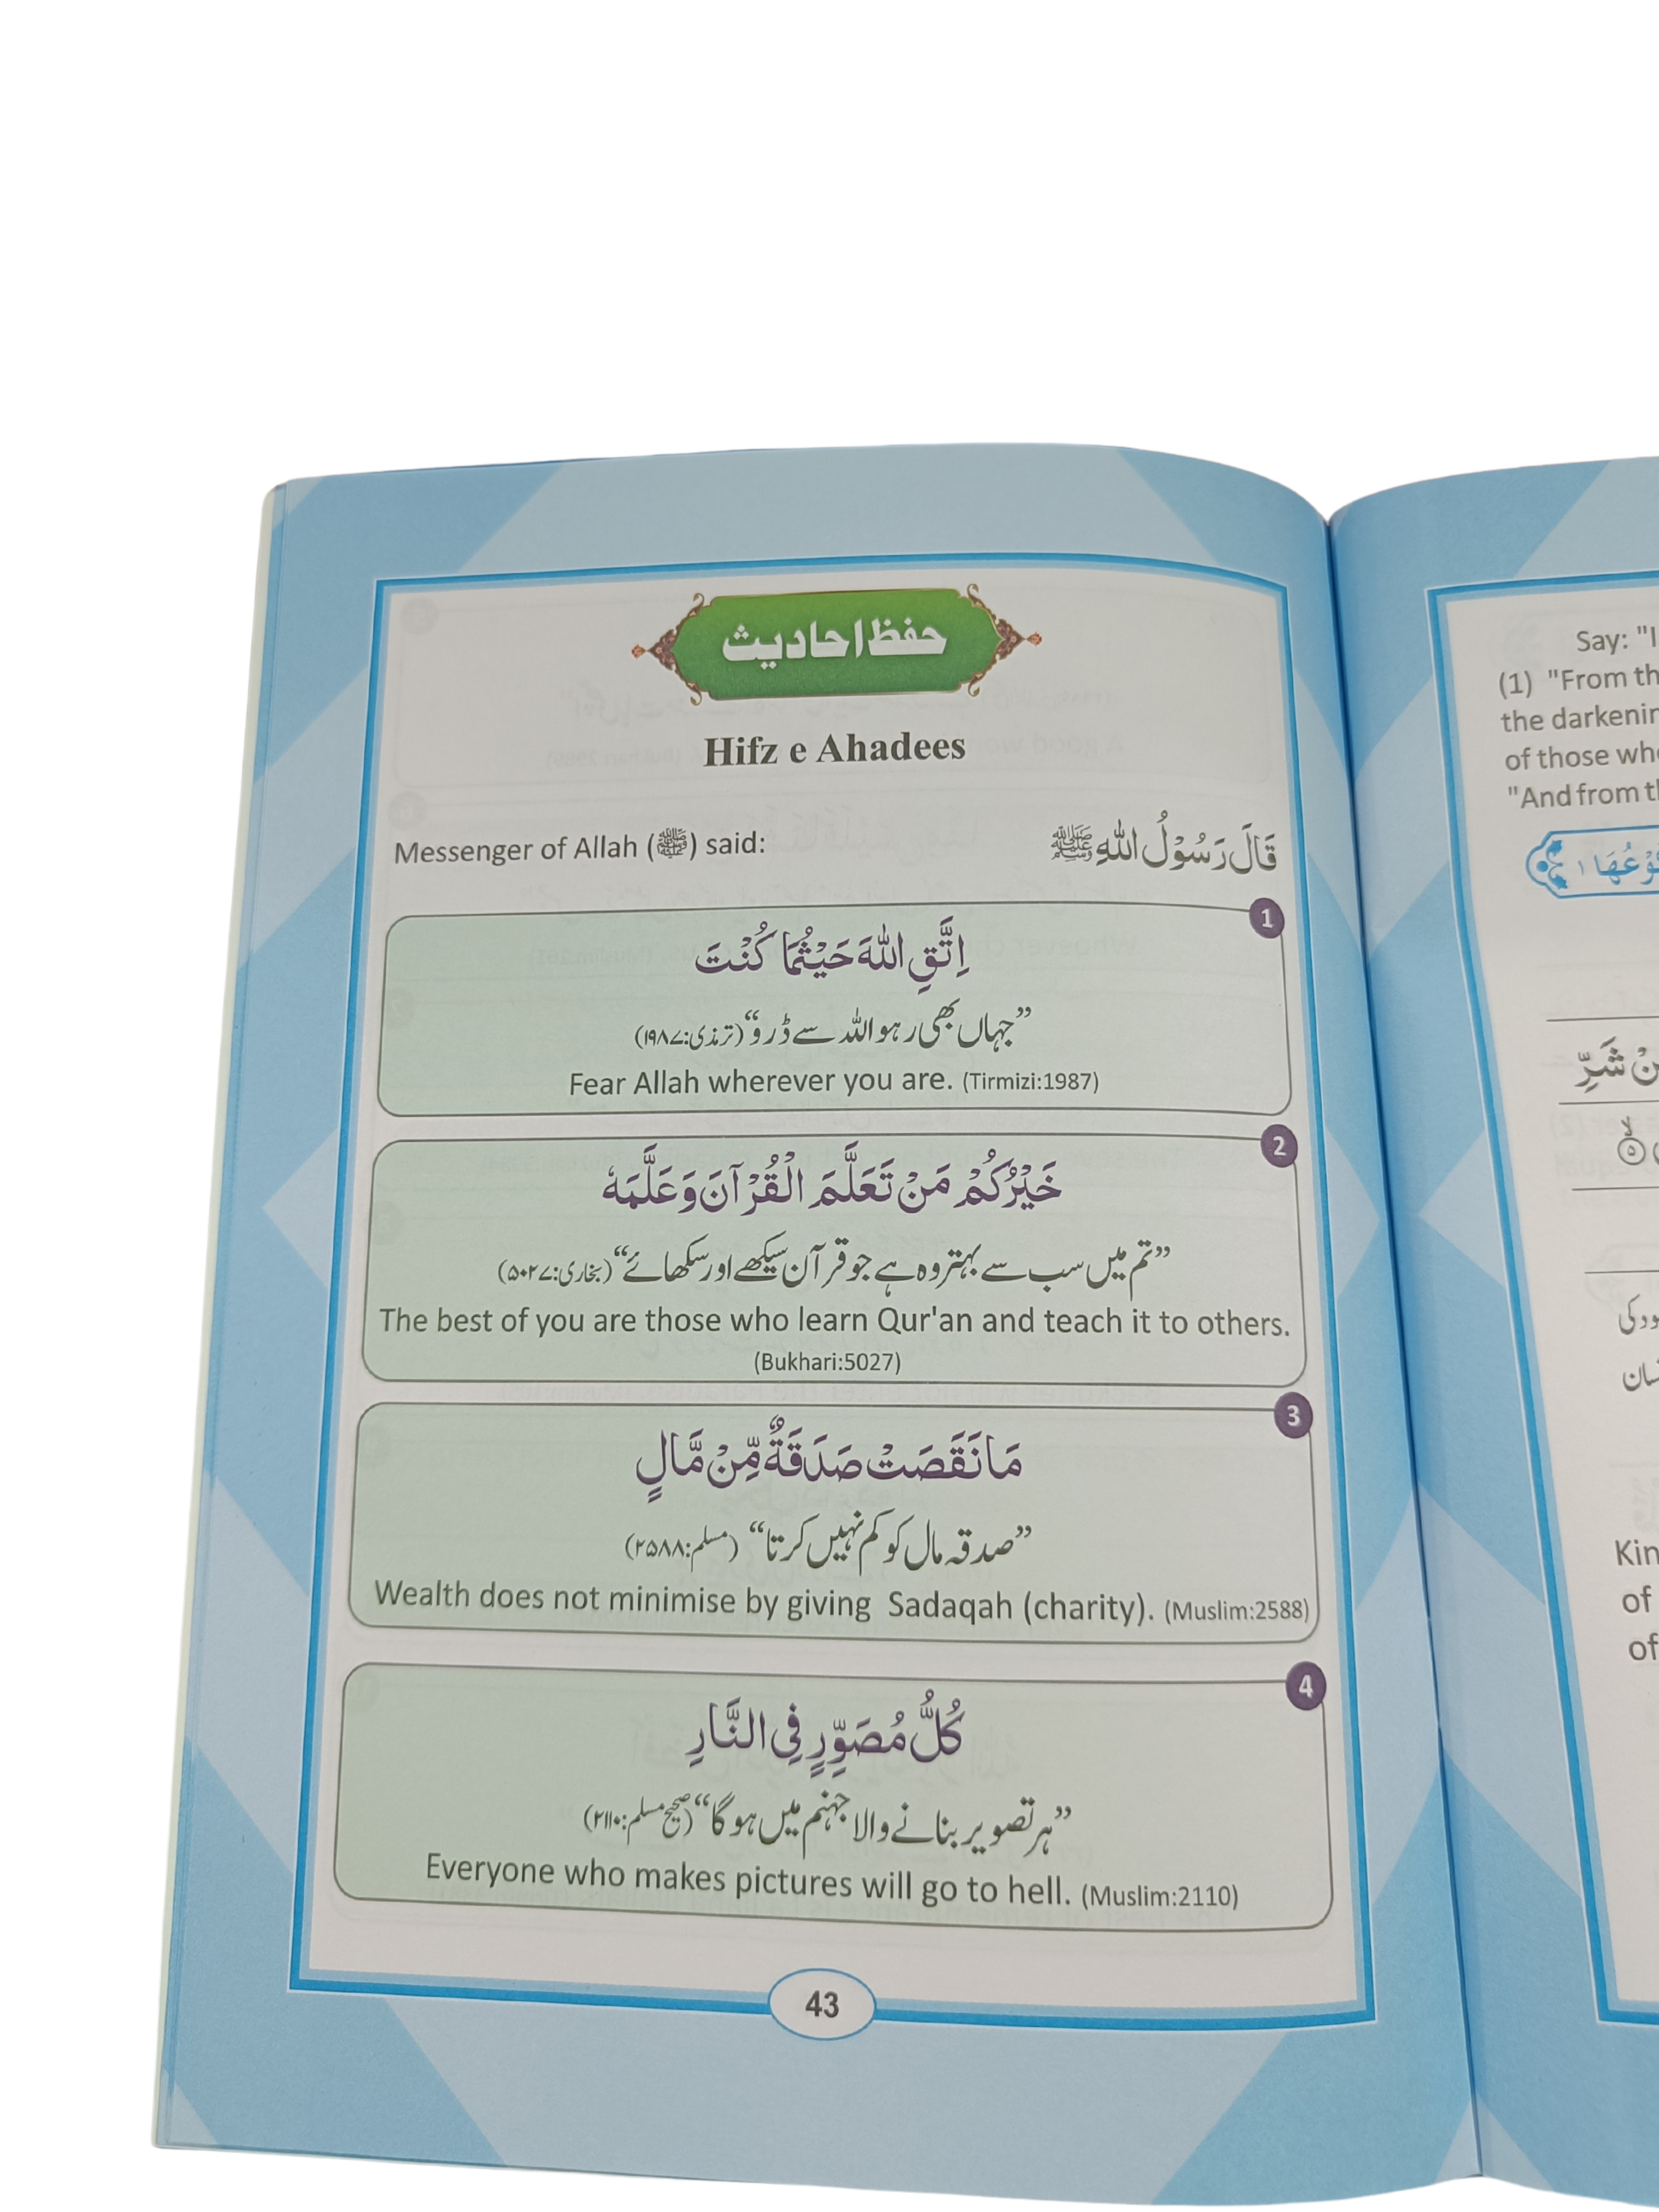 حفظ احادیث
Hifz e Ahadees
Messenger of Allah (ﷺ) said:
قَالَ رَسُوْلُ اللّٰهِ ﷺ
1
اِتَّقِ اللّٰهَ حَيْثُمَا كُنْتَ
”جہاں بھی رہو اللہ سے ڈرو“ (ترمذی:۱۹۸۷)
Fear Allah wherever you are. (Tirmizi:1987)
2
خَيْرُكُمْ مَنْ تَعَلَّمَ الْقُرْآنَ وَعَلَّمَهٗ
”تم میں سب سے بہتر وہ ہے جو قرآن سیکھے اور سکھائے“ (بخاری:۵۰۲۷)
The best of you are those who learn Qur'an and teach it to others.
(Bukhari:5027)
3
مَا نَقَصَتْ صَدَقَةٌ مِّنْ مَّالٍ
”صدقہ مال کو کم نہیں کرتا“ (مسلم:۲۵۸۸)
Wealth does not minimise by giving Sadaqah (charity). (Muslim:2588)
4
كُلُّ مُصَوِّرٍ فِي النَّارِ
”ہر تصویر بنانے والا جہنم میں ہوگا“ (صحیح مسلم:۲۱۱۰)
Everyone who makes pictures will go to hell. (Muslim:2110)
43
Say: "I
(1) "From th
the darkenin
of those who
"And from th
نْ شَرِّ
Kin
of
of